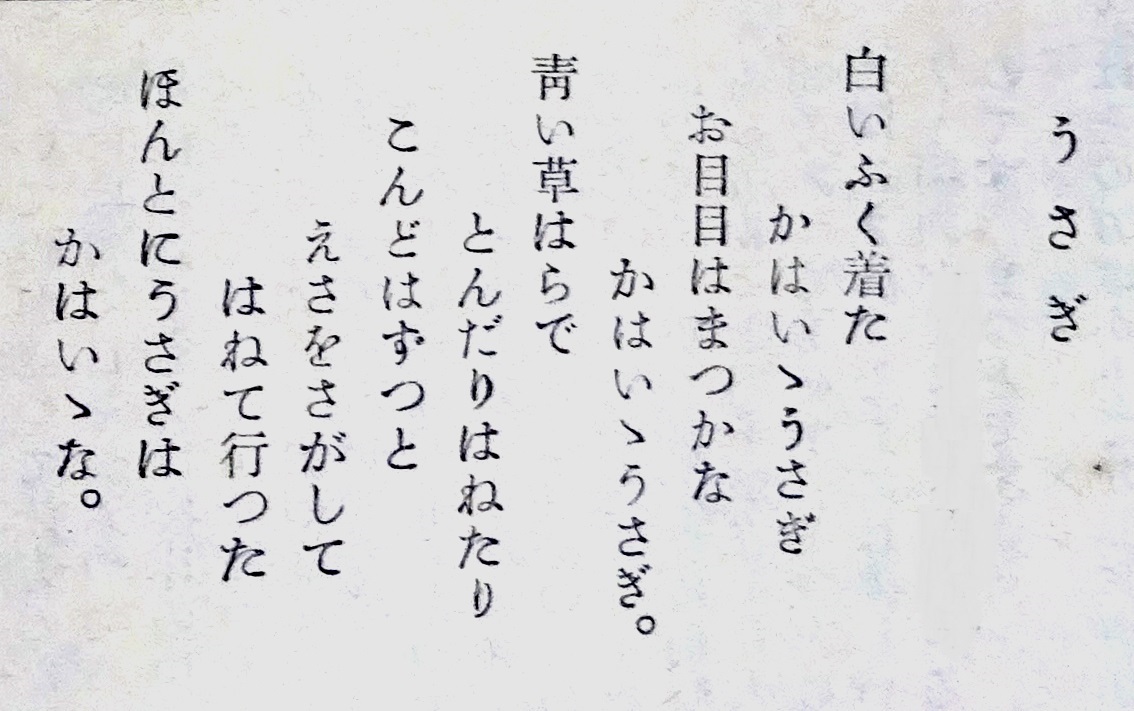 うさぎ
白いふく着た
かはいゝうさぎ
お目目はまつかな
かはいゝうさぎ。
靑い草はらで
とんだりはねたり
こんどはずつと
えさをさがして
はねて行つた
ほんとにうさぎは
かはいゝな。